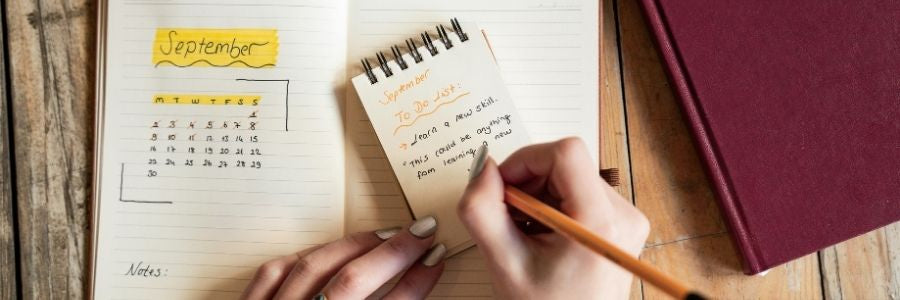 September
M T W T F S S
1
2 3 4 5 6 7 8
9 10 11 12 13 14 15
16 17 18 19 20 21 22
23 24 25 26 27 28 29
30
Notes:
September
To Do List:
→ Learn a new skill.
"This could be anything
from learning a new